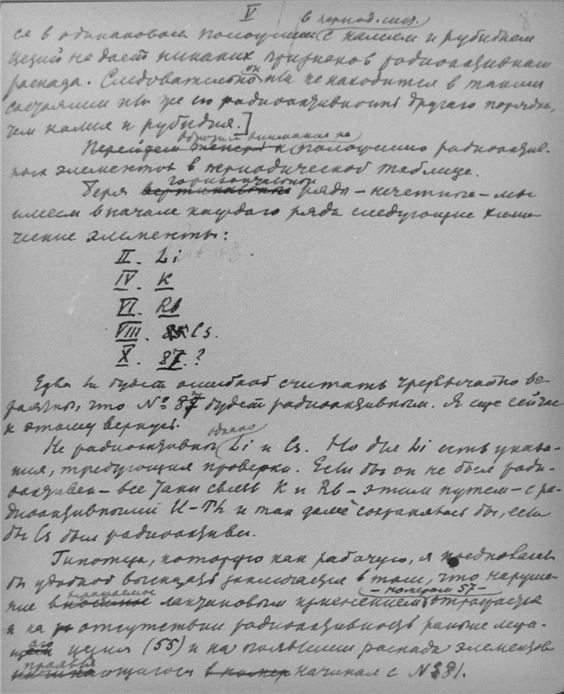 V
в период. сист.
ся в одинаковом положении с калием и рубидием
цезий не дает никаких признаков радиоактивного
распада. Следовательно он не находится в таком
состоянии или же его радиоактивность другого порядка,
чем калия и рубидия.]
обратим внимание на
Перейдем теперь к положению радиоактив-
ных элементов в периодической таблице.
горизонтальные
Беря вертикальные ряды - нечетные - мы
имеем в начале каждого ряда следующие хими-
ческие элементы:
II. Li
IV. K
VI. Rb
VIII. Cs.
X. 87. ?
Едва ли будет ошибкой считать чрезвычайно ве-
роятным, что № 87 будет радиоактивным. Я еще сейчас
к этому вернусь.
однако
Не радиоактивны Li и Cs. Но для Li есть указа-
ния, требующие проверки. Если бы он не был ради-
оактивен - все таки связь K и Rb - этим путем - с ра-
диоактивными U-Th и так далее сохранялась бы, если
бы Cs был радиоактивен.
Гипотеза, которую как рабочую, я
бы удобной высказать заключается в том, что наруше-
ние
- номером 57 -
лантановым отражается
и на отсутствии радиоактивности раньше
цезия (55) и на появлении распада элементов
начиная с № 81.